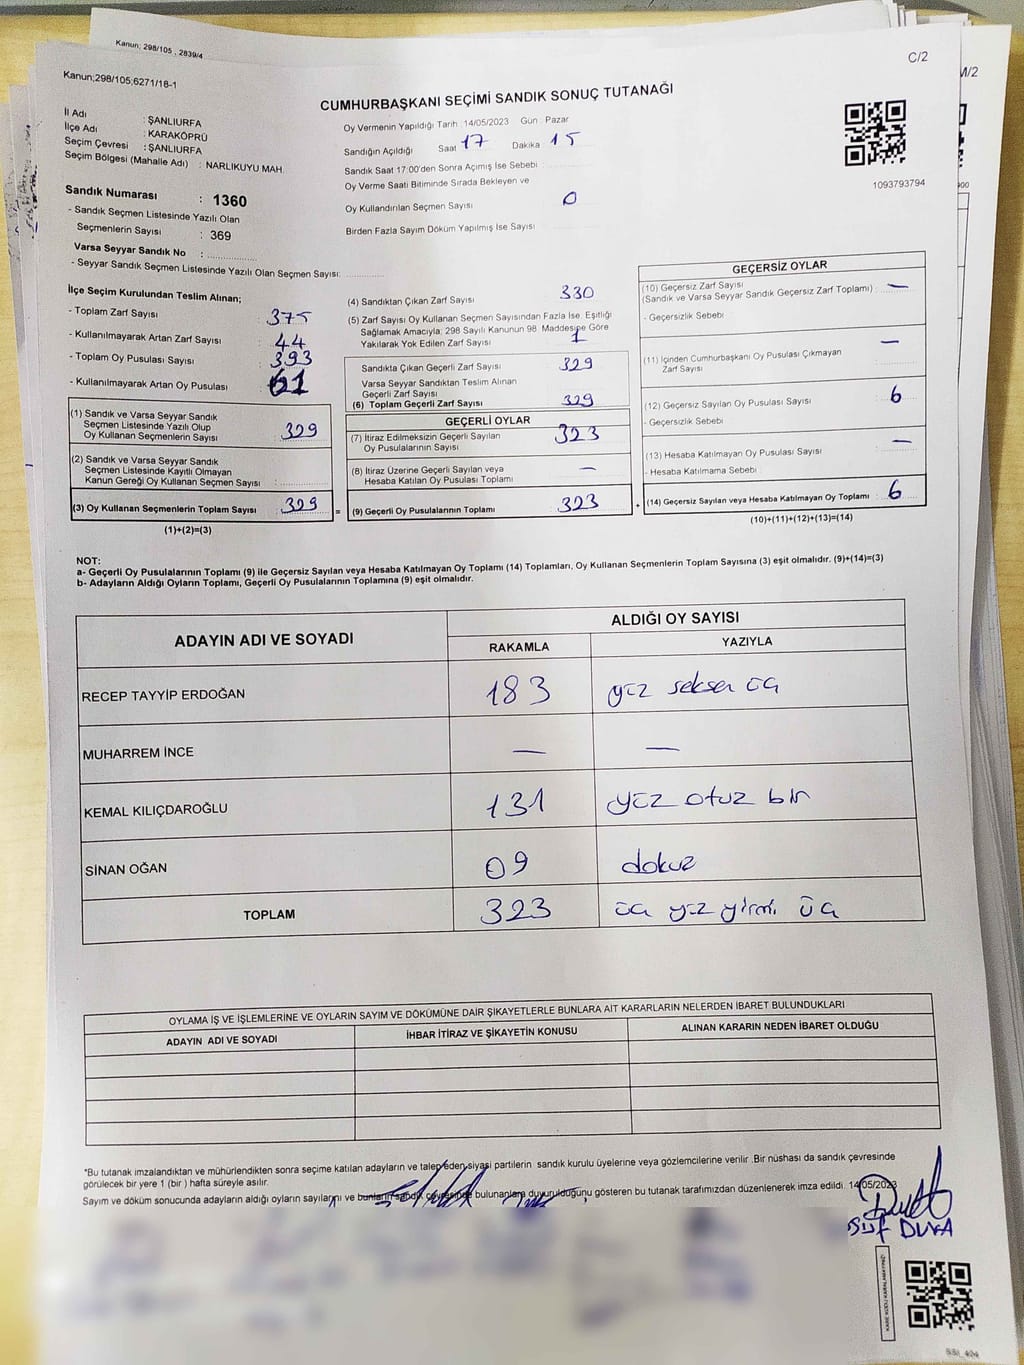 Kanun; 298/105 , 2839/4
Kanun;298/105;6271/18-1
C/2
M/2
CUMHURBAŞKANI SEÇİMİ SANDIK SONUÇ TUTANAĞI
İl Adı : ŞANLIURFA
İlçe Adı : KARAKÖPRÜ
Seçim Çevresi : ŞANLIURFA
Seçim Bölgesi (Mahalle Adı) : NARLIKUYU MAH.
Sandık Numarası : 1360
- Sandık Seçmen Listesinde Yazılı Olan
Seçmenlerin Sayısı : 369
Varsa Seyyar Sandık No :
- Seyyar Sandık Seçmen Listesinde Yazılı Olan Seçmen Sayısı:
Oy Vermenin Yapıldığı Tarih :14/05/2023 Gün : Pazar
Sandığın Açıldığı Saat 17 Dakika 15
Sandık Saat 17:00'den Sonra Açımış İse Sebebi :
Oy Verme Saati Bitiminde Sırada Bekleyen ve
Oy Kullandırılan Seçmen Sayısı 0
Birden Fazla Sayım Döküm Yapılmış İse Sayısı
1093793794
İlçe Seçim Kurulundan Teslim Alınan;
- Toplam Zarf Sayısı : 375
- Kullanılmayarak Artan Zarf Sayısı : 44
- Toplam Oy Pusulası Sayısı : 393
- Kullanılmayarak Artan Oy Pusulası : 61
(1) Sandık ve Varsa Seyyar Sandık
Seçmen Listesinde Yazılı Olup
Oy Kullanan Seçmenlerin Sayısı : 329
(2) Sandık ve Varsa Seyyar Sandık
Seçmen Listesinde Kayıtlı Olmayan
Kanun Gereği Oy Kullanan Seçmen Sayısı :
(3) Oy Kullanan Seçmenlerin Toplam Sayısı : 329 =
(1)+(2)=(3)
(4) Sandıktan Çıkan Zarf Sayısı 330
(5) Zarf Sayısı Oy Kullanan Seçmen Sayısından Fazla İse, Eşitliği
Sağlamak Amacıyla; 298 Sayılı Kanunun 98. Maddesine Göre
Yakılarak Yok Edilen Zarf Sayısı 1
Sandıkta Çıkan Geçerli Zarf Sayısı 329
Varsa Seyyar Sandıktan Teslim Alınan
Geçerli Zarf Sayısı
(6) Toplam Geçerli Zarf Sayısı 329
GEÇERLİ OYLAR
(7) İtiraz Edilmeksizin Geçerli Sayılan
Oy Pusulalarının Sayısı 323
(8) İtiraz Üzerine Geçerli Sayılan veya
Hesaba Katılan Oy Pusulası Toplamı —
(9) Geçerli Oy Pusulalarının Toplamı 323 +
GEÇERSİZ OYLAR
(10) Geçersiz Zarf Sayısı
(Sandık ve Varsa Seyyar Sandık Geçersiz Zarf Toplamı) : —
- Geçersizlik Sebebi :
(11) İçinden Cumhurbaşkanı Oy Pusulası Çıkmayan
Zarf Sayısı —
(12) Geçersiz Sayılan Oy Pusulası Sayısı 6
- Geçersizlik Sebebi
(13) Hesaba Katılmayan Oy Pusulası Sayısı —
- Hesaba Katılmama Sebebi :
(14) Geçersiz Sayılan veya Hesaba Katılmayan Oy Toplamı : 6
(10)+(11)+(12)+(13)=(14)
NOT:
a- Geçerli Oy Pusulalarının Toplamı (9) ile Geçersiz Sayılan veya Hesaba Katılmayan Oy Toplamı (14) Toplamları, Oy Kullanan Seçmenlerin Toplam Sayısına (3) eşit olmalıdır. (9)+(14)=(3)
b- Adayların Aldığı Oyların Toplamı, Geçerli Oy Pusulalarının Toplamına (9) eşit olmalıdır.
ADAYIN ADI VE SOYADI
ALDIĞI OY SAYISI
RAKAMLA YAZIYLA
RECEP TAYYİP ERDOĞAN 183 yüz seksen üç
MUHARREM İNCE — —
KEMAL KILIÇDAROĞLU 131 yüz otuz bir
SİNAN OĞAN 09 dokuz
TOPLAM 323 üç yüz yirmi üç
OYLAMA İŞ VE İŞLEMLERİNE VE OYLARIN SAYIM VE DÖKÜMÜNE DAİR ŞİKAYETLERLE BUNLARA AİT KARARLARIN NELERDEN İBARET BULUNDUKLARI
ADAYIN ADI VE SOYADI İHBAR İTİRAZ VE ŞİKAYETİN KONUSU ALINAN KARARIN NEDEN İBARET OLDUĞU
*Bu tutanak imzalandıktan ve mühürlendikten sonra seçime katılan adayların ve talep eden siyasi partilerin sandık kurulu üyelerine veya gözlemcilerine verilir .Bir nüshası da sandık çevresinde
görülecek bir yere 1 (bir ) hafta süreyle asılır.
Sayım ve döküm sonucunda adayların aldığı oyların sayılarını ve bunların sandık çevresinde bulunanlara duyurulduğunu gösteren bu tutanak tarafımızdan düzenlenerek imza edildi. 14/05/2023